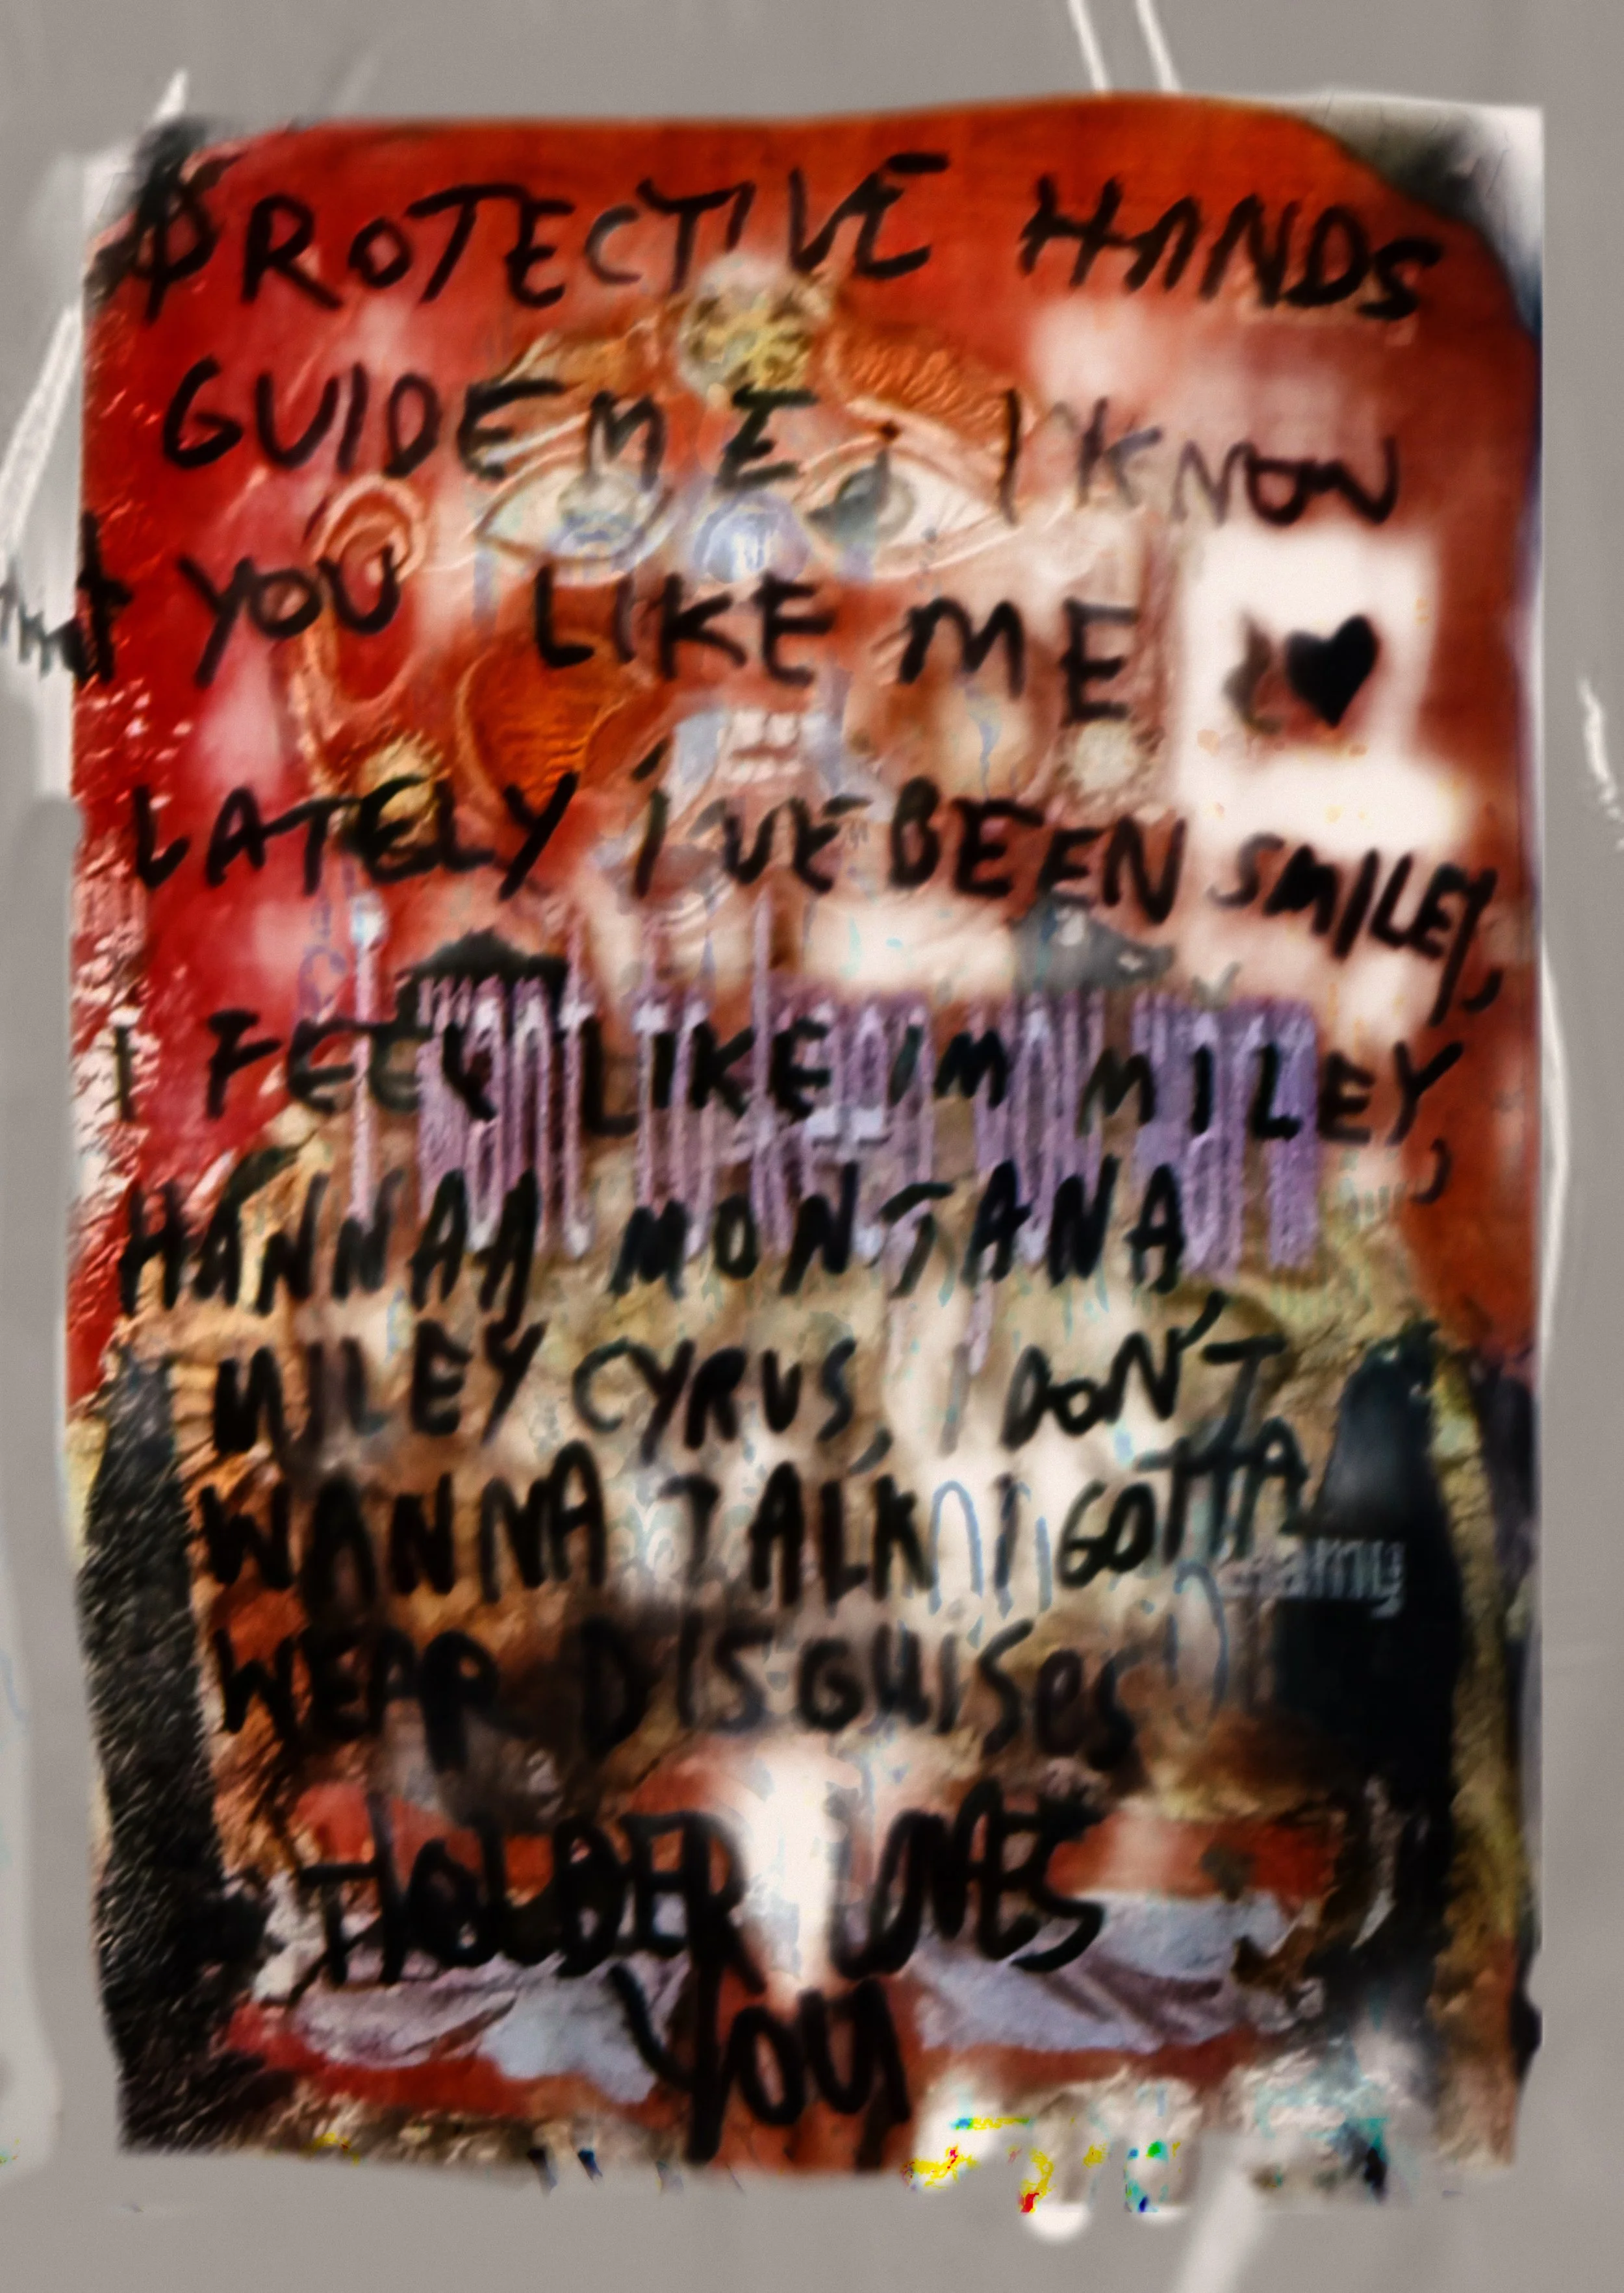 PROTECTIVE HANDS
GUIDE ME, I KNOW
YOU LIKE ME ♥
LATELY I'VE BEEN SMILEY,
I FEEL LIKE IM MILEY,
HANNAA MONTANA,
MILEY CYRUS, I DON'T
WANNA TALK I GOTTA
WEAR DISGUISES
HOLDER LOVES
YOU